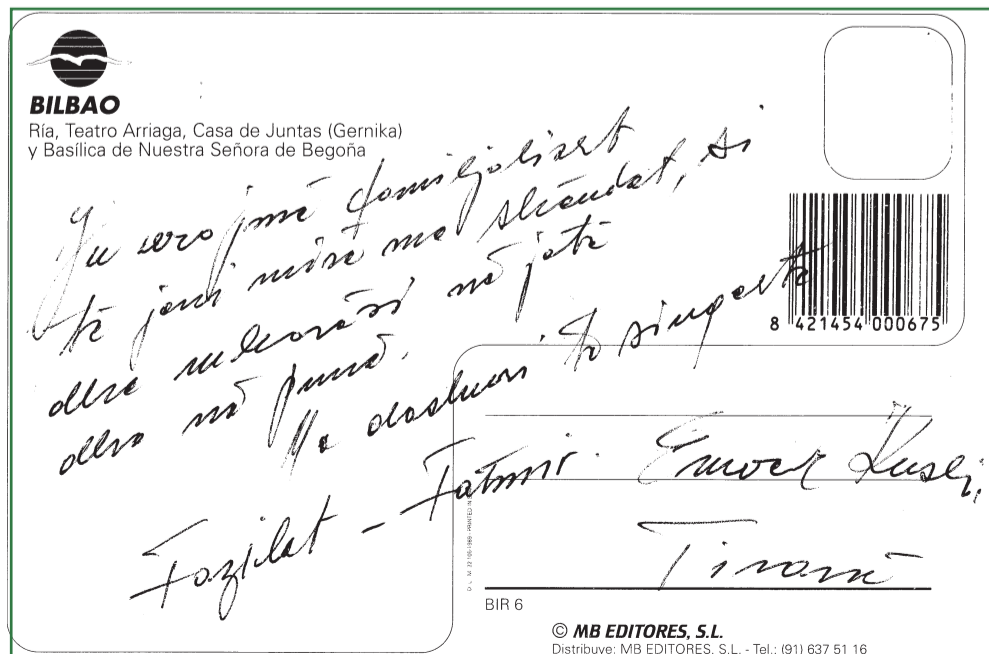 BILBAO
Ría, Teatro Arriaga, Casa de Juntas (Gernika)
y Basílica de Nuestra Señora de Begoña
Ju uroj familjarisht
të jeni mirë me shëndet, si
dhe suksesi në jetë
dhe në punë.
Me dashuri të singertë
Fazilet - Fatmir.
Enver Kushi,
Tiranë
8 421454 000675
BIR 6
© MB EDITORES, S.L.
Distribuye: MB EDITORES, S.L. - Tel.: (91) 637 51 16